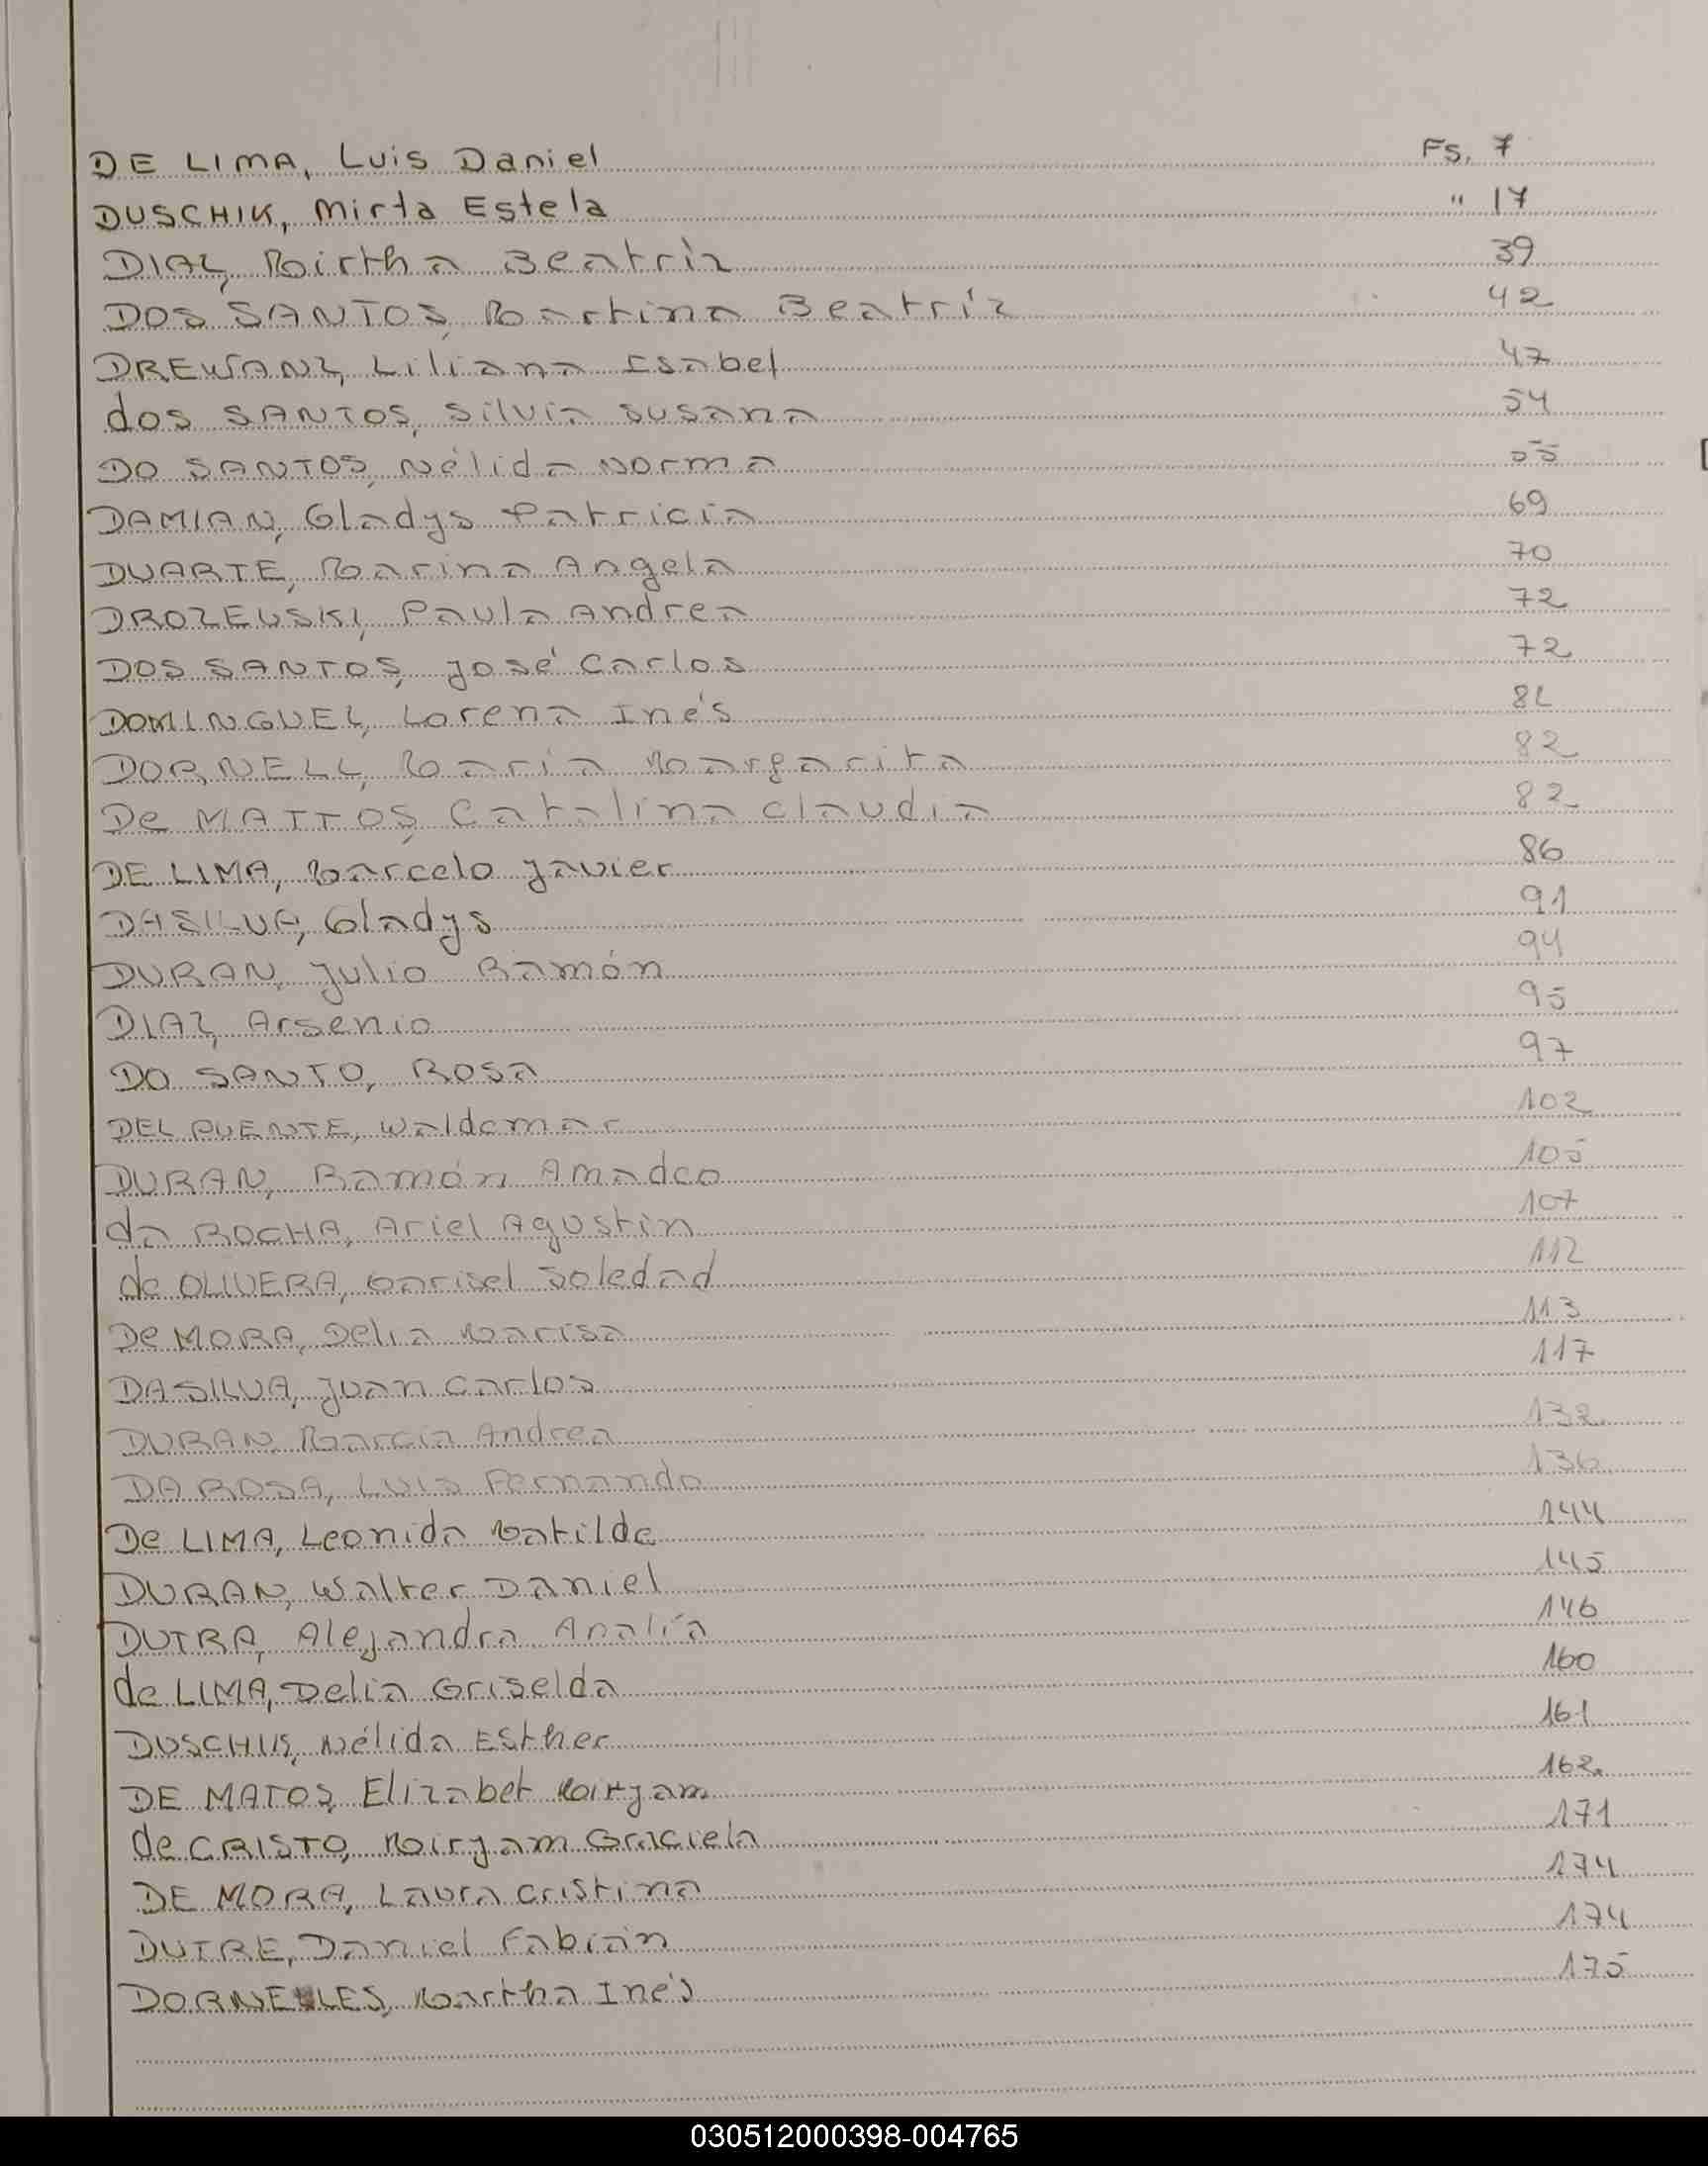 DE LIMA, Luis Daniel Fs. 7
DUSCHIK, Mirta Estela " 17
DIAZ, Mirtha Beatriz 39
DOS SANTOS, Martina Beatríz 42
DREWANZ, Liliana Isabel 47
dos SANTOS, Silvia Susana 54
DO SANTOS, Nélida Norma 55
DAMIAN, Gladys Patricia 69
DUARTE, Marina Angela 70
DROZEUSKI, Paula Andrea 72
DOS SANTOS, José Carlos 72
DOMINGUEZ, Lorena Inés 82
DORNELL, María Margarita 82
De MATTOS, Catalina Claudia 82
DE LIMA, Marcelo Javier 86
DASILVA, Gladys 91
DURAN, Julio Ramón 94
DIAZ, Arsenio 95
DO SANTO, Rosa 97
DEL PUENTE, Waldemar 102
DURAN, Ramón Amadeo 105
da ROCHA, Ariel Agustín 107
de OLIVERA, Marisel Soledad 112
De MORA, Delia Marisa 113
DASILVA, Juan Carlos 117
DURAN, Marcia Andrea 132
DA ROSA, Luis Fernando 136
De LIMA, Leonida Matilde 144
DURAN, Walter Daniel 145
DUTRA, Alejandra Analía 146
de LIMA, Delia Griselda 160
Nélida Esther 161
DE MATOS, Elizabet Miryam 162
de CRISTO, Miryam Graciela 171
DE MORA, Laura Cristina 174
DUTRE, Daniel Fabián 174
DORNELLES, Martha Inés 175
030512000398-004765